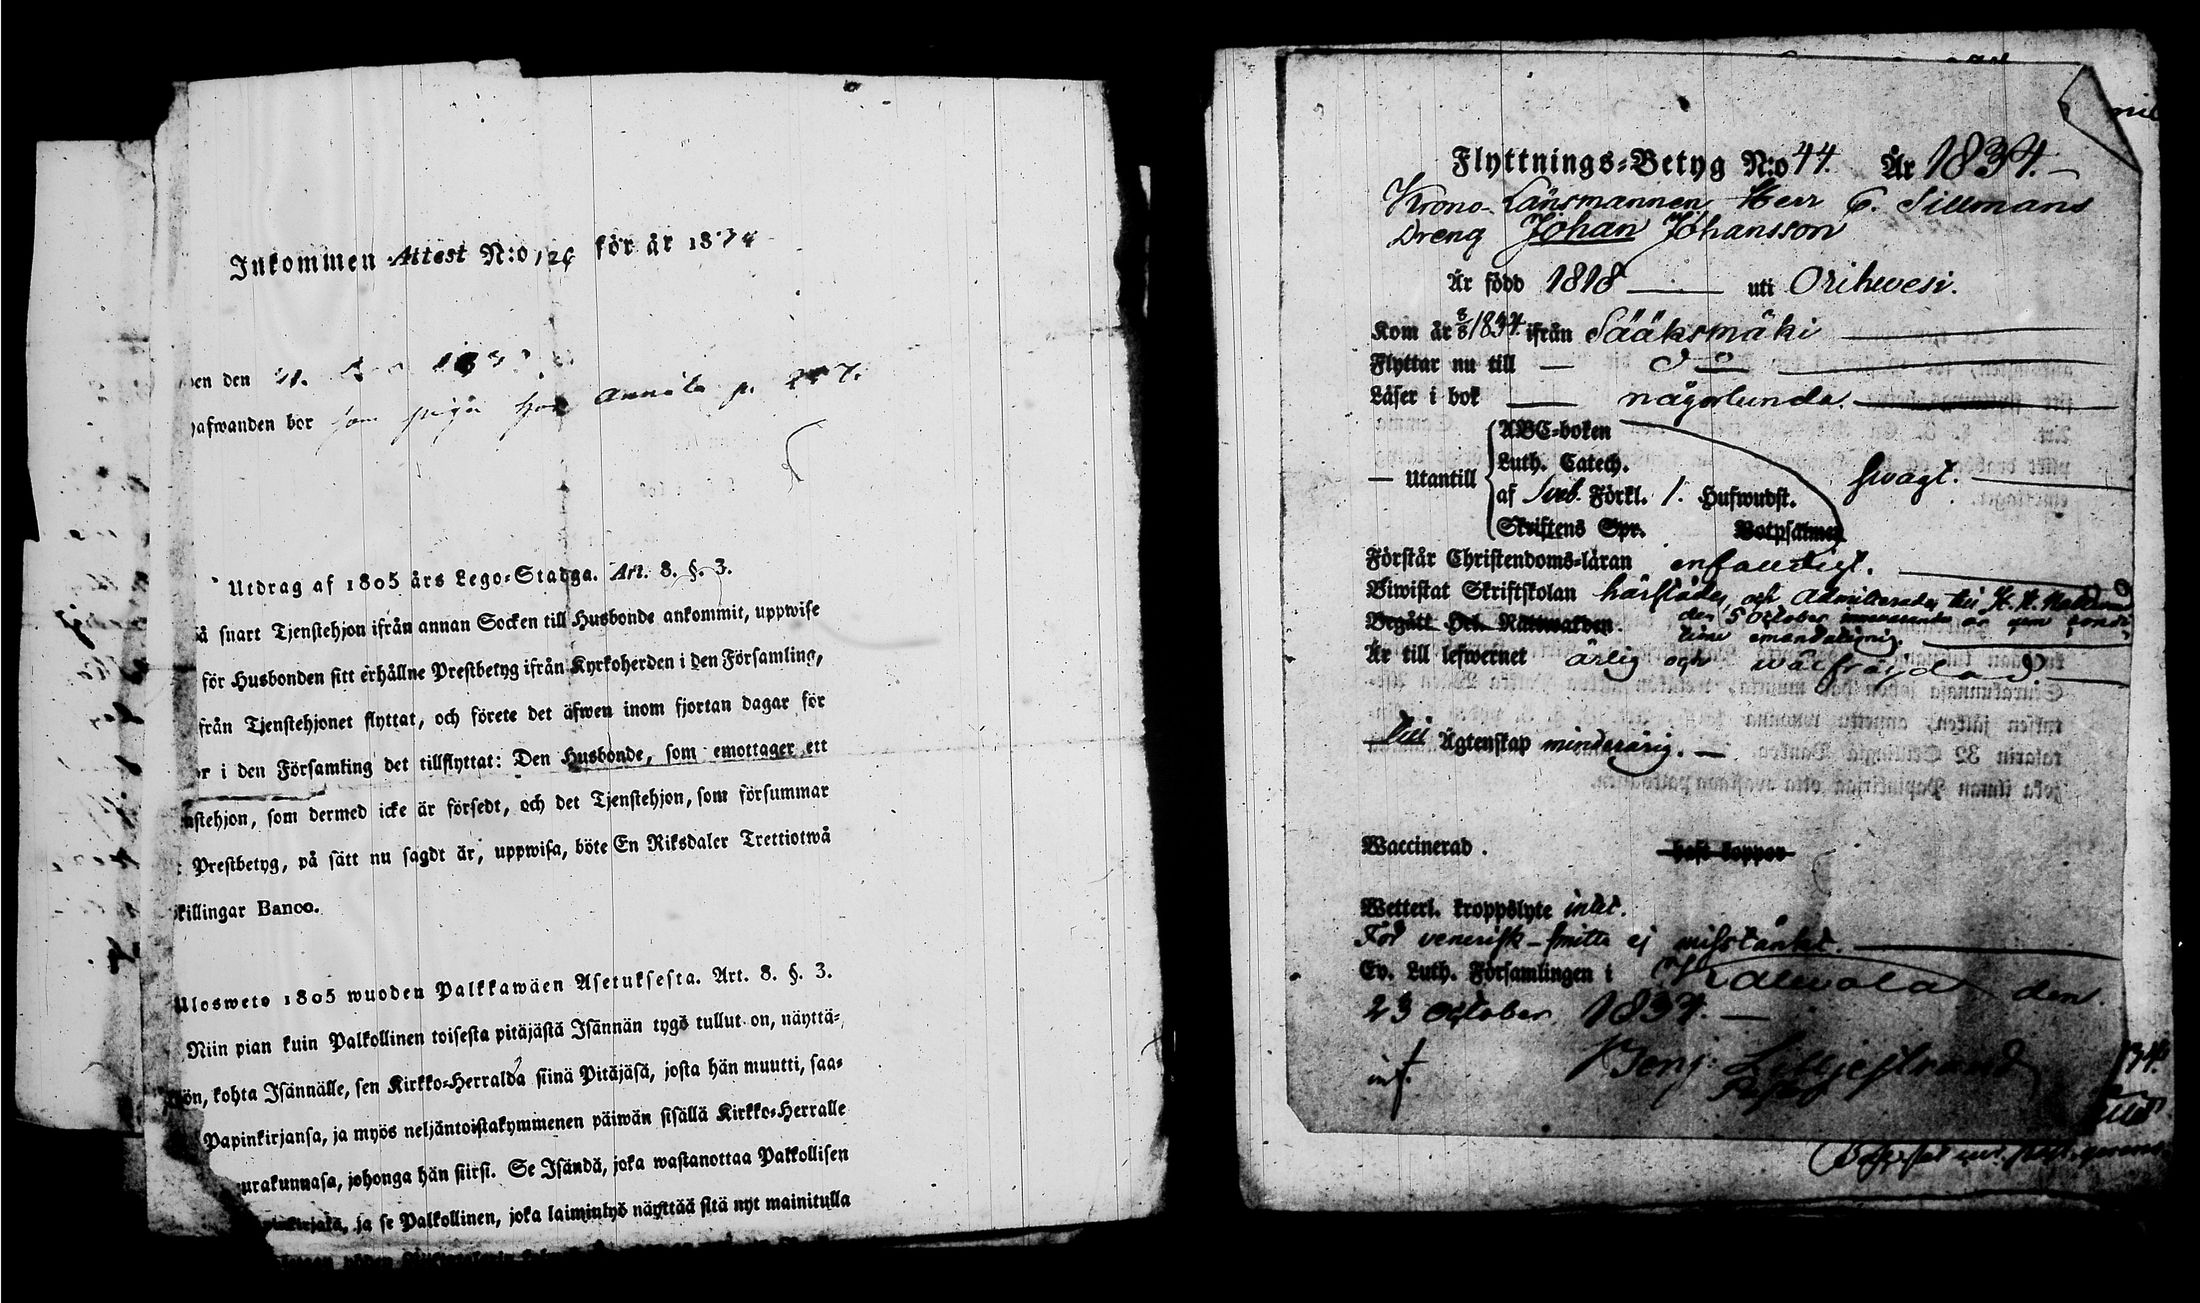 Inkommen Attest N:o 126 för år 1834
den den 21.
hafwanden bor som piga hos Annila p.
Utdrag af 1805 års Lego-Stadga. Art. 8. §. 3.
så snart Tjenstehjon ifrån annan Socken till Husbonde ankommit, uppwise
för Husbonden sitt erhållne Prestbetyg ifrån Kyrkoherden i den Församling,
från Tjenstehjonet flyttat, och förete det äfwen inom fjortan dagar för
i den Församling det tillflyttat: Den Husbonde, som emottager ett
nstehjon, som dermed icke är försedt, och det Tjenstehjon, som försummar
Prestbetyg, på sätt nu sagdt är, uppwisa, böte En Riksdaler Trettiotwå
killingar Banco.
Ulosweto 1805 wuoden Palkkawäen Asetuksesta. Art. 8. §. 3.
Niin pian kuin Palkollinen toisesta pitäjästä Isännän tygö tullut on, näyttä-
kön, kohta Isännälle, sen Kirkko-Herralda siinä Pitäjäsä, josta hän muutti, saa-
Papinkirjansa, ja myös neljäntoistakymmenen päiwän sisällä Kirkko-Herralle
urakunnasa, johonga hän siirsi. Se Isändä, joka wastanottaa Palkollisen
ja se Palkollinen, joka laiminlyö näyttää sitä nyt mainitulla
Flyttnings-Betyg N:o 44. År 1834.
Krono-Länsmannen Herr C. Sillmans
Dreng Johan Johansson
Är född 1818 uti Orihwesi.
Kom år 1834 ifrån Sääksmäki
Flyttar nu till — d:o
Läser i bok — någorlunda.
— utantill
ABC-boken
Luth. Catech.
af Sveb. Förkl. 1. Hufwudst. swagt.
Skriftens Spr. Botpsalmer
Förstår Christendoms-läran enfaldigt.
Biwistat Skriftskolan härstädes, och admitterades till H. H. Nattward
Begått Hel. Nattwarden. den 5 October
Är till lefwernet ärlig och wälfräjdad.
Till Ägtenskap minderårig. —
Waccinerad. haft koppor
Wetterl. kroppslyte intet.
För venerisk-smitta ej misstänkt.
Ev. Luth. Församlingen i Kalwola den
23 October 1834. —
Benj: Lilljestrand
Past